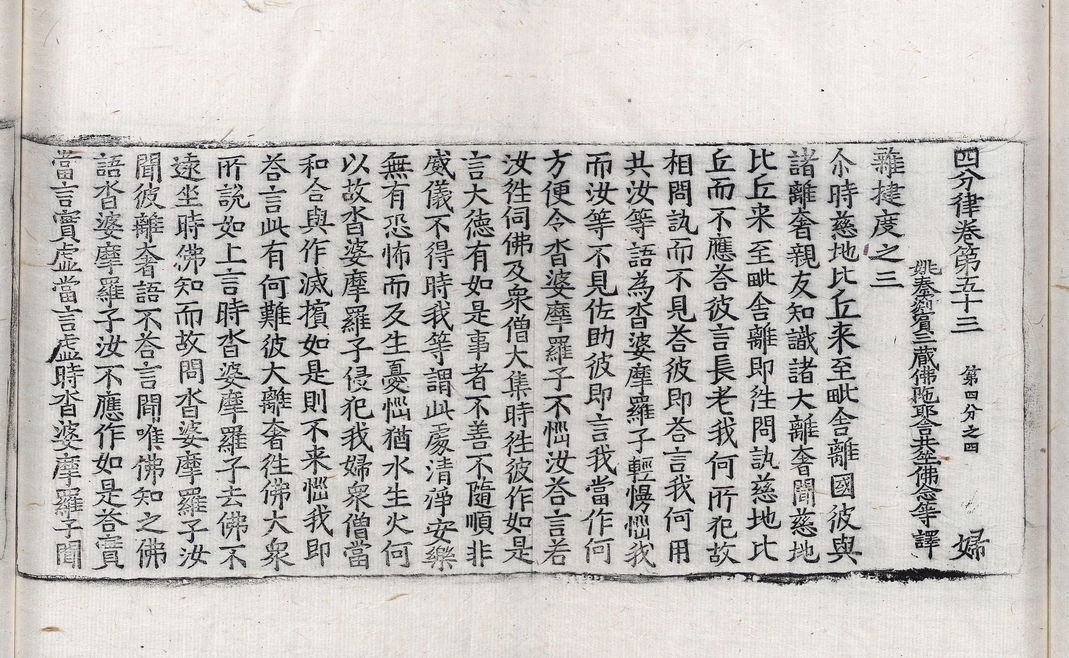 四分律卷第五十三 第四分之四 婦
姚秦罽賓三蔵佛陁耶舍共竺佛念等譯
雜揵度之三
尒時慈地比丘来至毗舍離國彼與
諸離奢親友知識諸大離奢聞慈地
比丘来至毗舍離即徃問訊慈地比
丘而不應荅彼言長老我何所犯故
相問訊而不見荅彼即荅言我何用
共汝等語為沓婆摩羅子輕慢惱我
而汝等不見佐助彼即言我當作何
方便令沓婆摩羅子不惱汝荅言若
汝徃伺佛及衆僧大集時徃彼作如是
言大德有如是事者不善不隨順非
威儀不得時我等謂此處清淨安樂
無有恐怖而及生憂惱猶水生火何
以故沓婆摩羅子侵犯我婦衆僧當
和合與作滅擯如是則不来惱我即
荅言此有何難彼大離奢徃佛大衆
所說如上言時沓婆摩羅子去佛不
遠坐時佛知而故問沓婆摩羅子汝
聞彼離奢語不荅言聞唯佛知之佛
語沓婆摩羅子汝不應作如是荅實
當言實虛當言虛時沓婆摩羅子聞